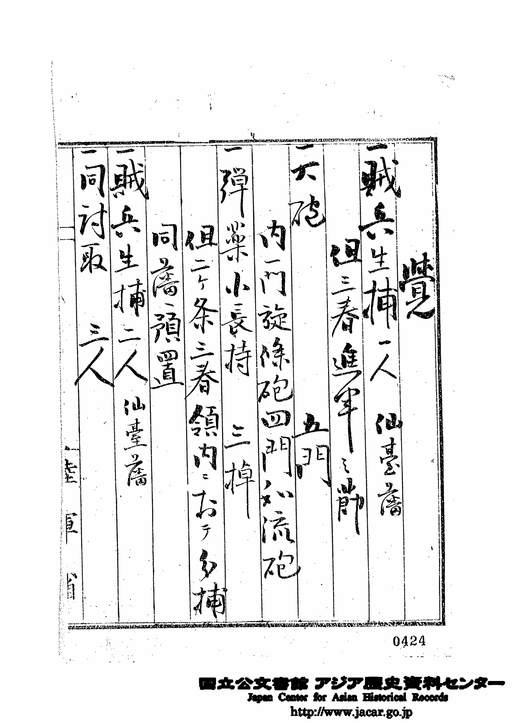 覺
一賊兵生捕一人 仙臺藩
但三春進軍之節
一大砲 五門
内一門旋條砲四門和流砲
一弾薬小長持 三棹
但二ケ条三春領内ニおヰテ分捕
同藩預置
一賊兵生捕二人 仙臺藩
一同討取 三人
陸軍省
0424
国立公文書館 アジア歴史資料センター
Japan Center for Asian Historical Records
http://www.jacar.go.jp